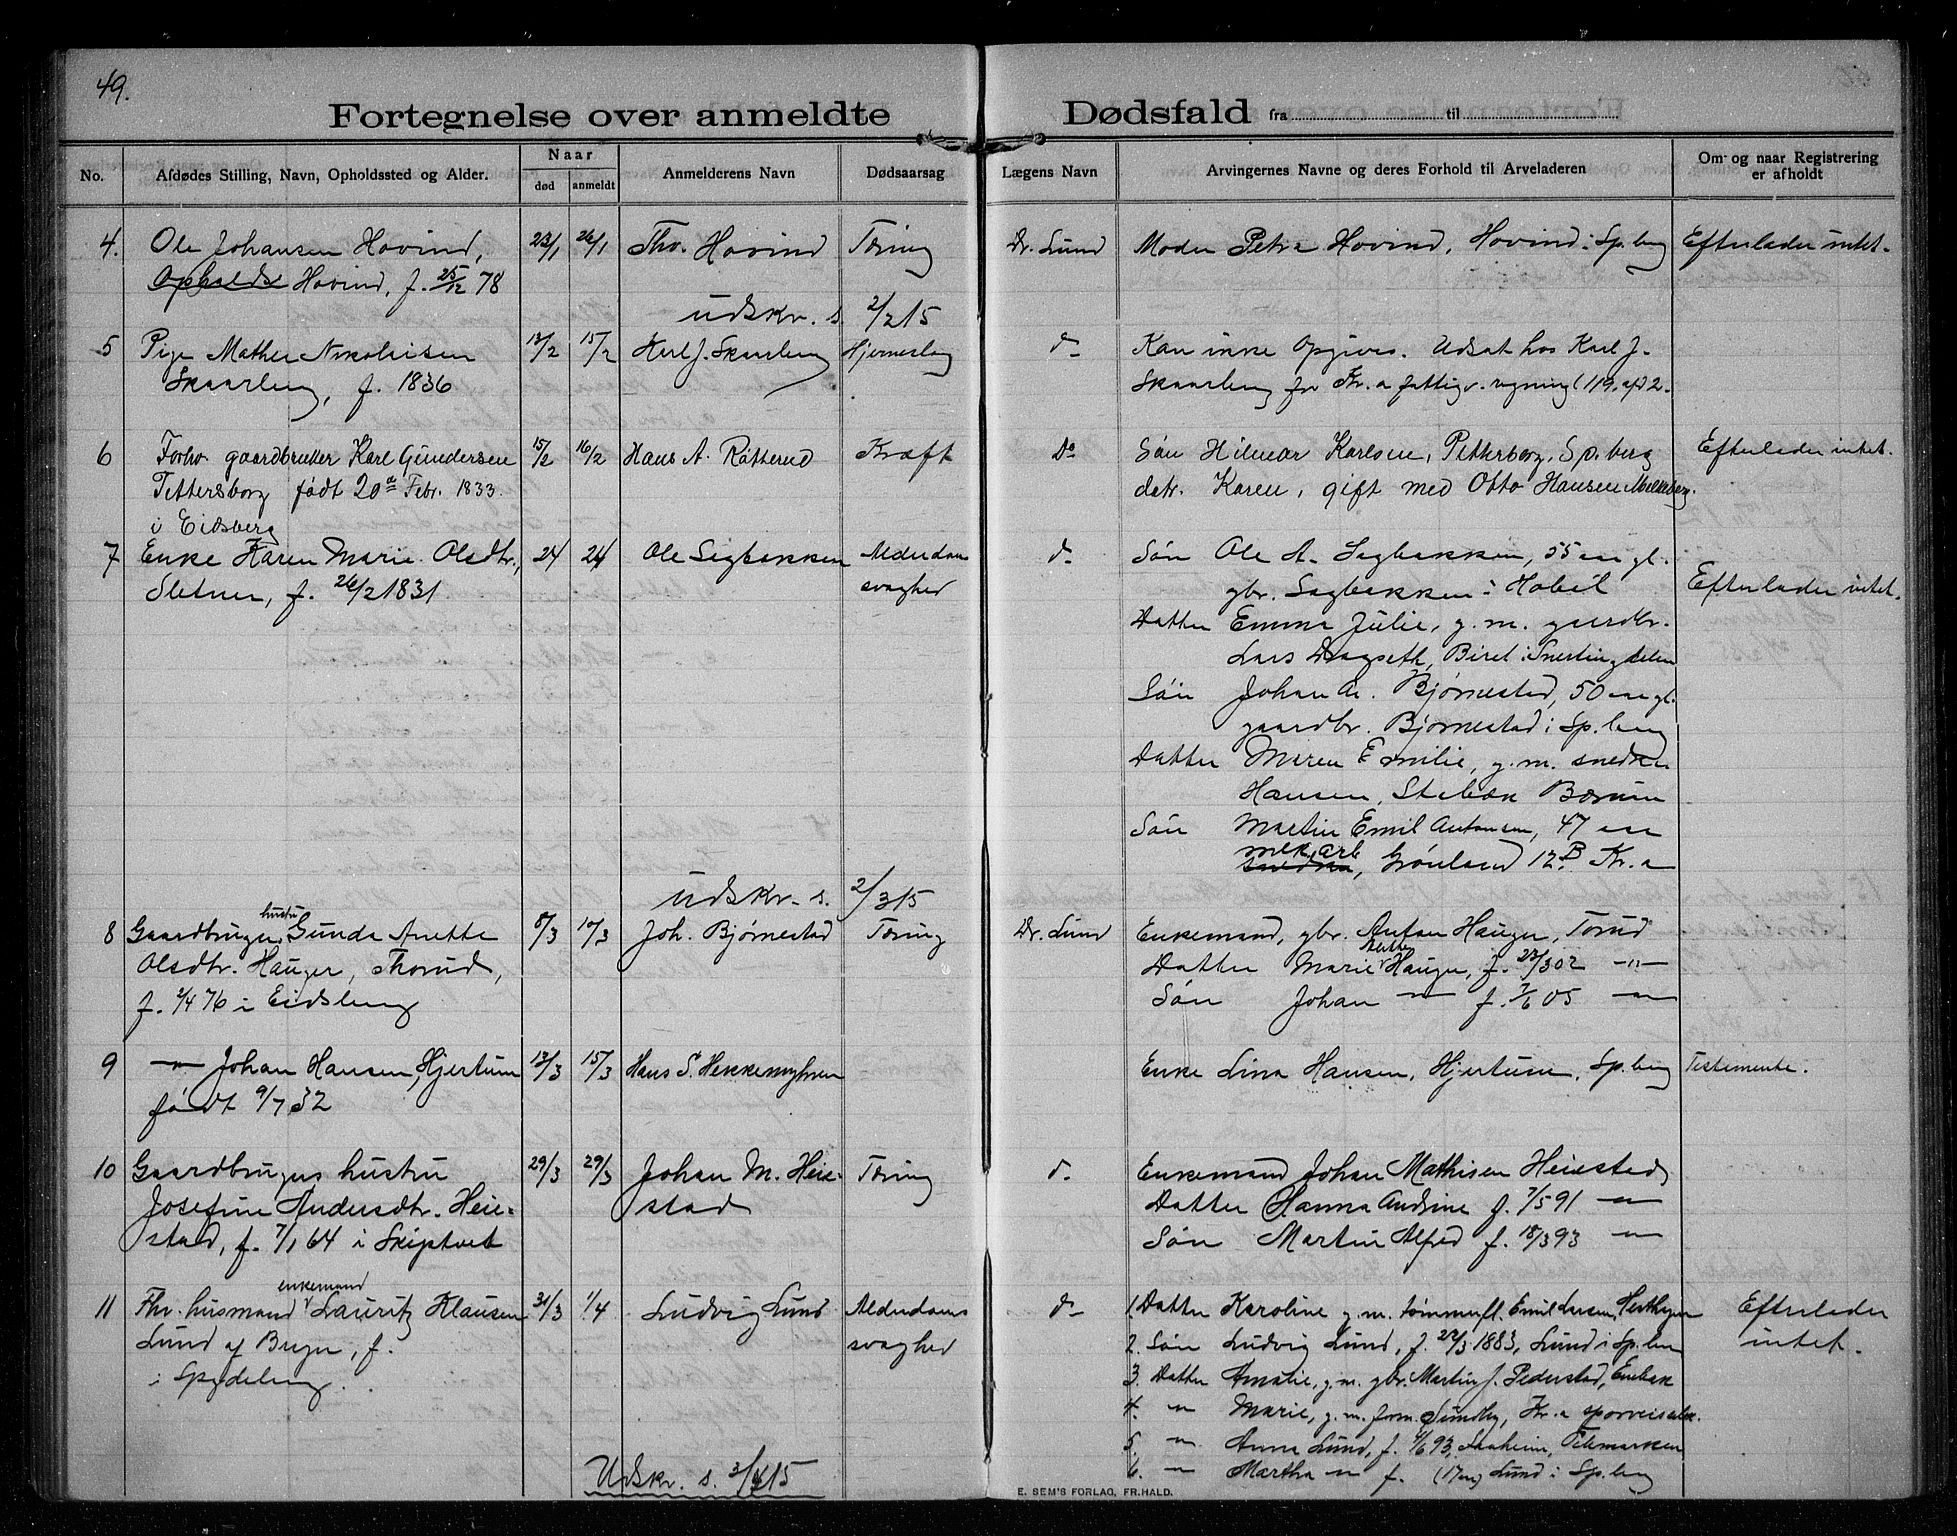 49.
Fortegnelse over anmeldte Dødsfald fra til
No.
Afdødes Stilling, Navn, Opholdssted og Alder.
Naar
død
anmeldt
Anmelderens Navn
Dødsaarsag
Lægens Navn
Arvingernes Navne og deres Forhold til Arveladeren
Om og naar Registrering
er afholdt
4. Ole Johansen Hovind, 23/1 26/1 Thv. Hovind Tæring Dr. Lund Moder Petra Hovind, Hovind i Sp.berg Efterlader intet.
Opholds Hovind, f. 25/12 78
udskr. s. 2/2 15
5 Pige Mathea Nikolaisen 12/2 15/2 Karl J. Skaarberg Hjerneslag do Kan ikke opgives. Udsat hos Karl J.
Skaarberg, f. 1836 Skaarberg for Kr.a fattigv. regning
6 Forhv. gaardbruker Karl Gundersen 15/2 16/2 Hans A. Råtterud Kræft Do Søn Hilmar Karlsen, Pettersborg, Sp.berg Efterlader intet.
Pettersborg født 20de Febr. 1833. datr. Karen, gift med Otto Hansen Mælleberg.
i Eidsberg
7 Enke Karen Marie Olsdtr., 24 24 Ole Sagbakken Alderdoms do Søn Ole A. Sagbakken, 55 aar gl.
Sletner, f. 26/2 1831. svaghed gbr. Sagbakken i Hobøl Efterlader intet.
Datter Emma Julie, g.m. gaardbr.
Lars Dragseth, Biret i Snertingdalen
Søn Johan A. Bjørnestad, 50 aar gl.
gaardbr. Bjørnestad i Sp.berg
Datter Maren Emilie, g.m. snedker
Hansen, Stabæk Bærum
Søn Martin Emil Antonsen, 47 aar
mek. arb
snedker, Grønland 12 B Kr.a
udskr. s. 2/3 15
hustru
8 Gaardbruger Gunda Anette 8/3 10/3 Joh. Bjørnestad Tæring Dr. Lund Enkemand, gbr. Anton Hauger, Torud
Olsdtr. Hauger, Thorud, Datter Marie Hauger, f. 23/3 02 -"-
f. 2/4 76 i Eidsberg Søn Johan -"- f. 7/6 05 -"-
9 -"- Johan Hansen, Hjertum 13/3 15/3 Hans S. Hekkemyhren Enke Lina Hansen, Hjertum, Sp.berg Testamente.
født 9/7 32
10 Gaardbrugers hustru 29/3 29/3 Johan M. Heie- Tæring do Enkemand Johan Mathisen Heiestad
Josefine Andersdtr. Heie- stad Datter Hanna Andrine f. 7/5 91 -"-
stad, f. 7/1 64 i Skiptvet Søn Martin Alfred f. 18/3 93 -"-
enkemand
11 Fhv. husmand Lauritz Klausen 31/3 1/4 Ludvig Lund Alderdoms do 1. Datter Karoline g.m. tømmerfl. Emil Larsen, Efterlader
Lund af Breger, f. svaghed 2. Søn Ludvig Lund, f. 22/3 1883, Lund i Sp.berg intet.
i Spydeberg. 3. Datter Amalie, g.m. gbr. Martin J. Pederstad, Enebak
4. -"- Marie, g.m. form. Sundby, Kr.a sporveisselsk.
5. -"- Anna Lund, f. 1/6 93, Saaheim, Telemarken
6. -"- Martha -"- f. (17 aar) Lund i Sp.berg
Udskr. s. 3/4 15
E. SEM'S FORLAG, FR.HALD.